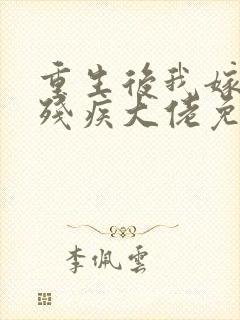 重生後我嫁
殘疾大佬免
李佩雲